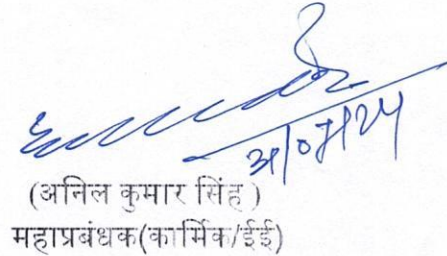 (अनिल कुमार सिंह )
महाप्रबंधक(कार्मिक/ईई)